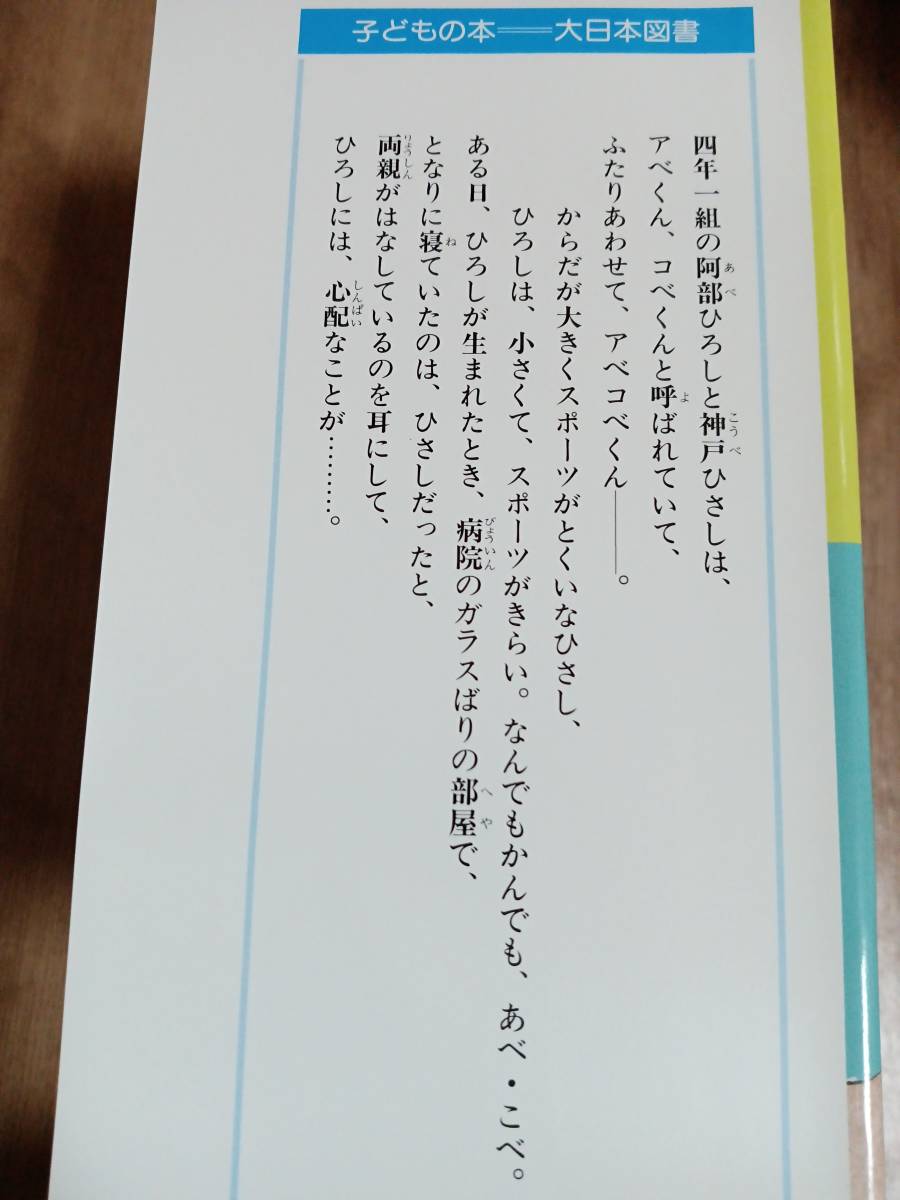 子どもの本══大日本図書
四年一組の阿部ひろしと神戸ひさしは、
アベくん、コベくんと呼ばれていて、
ふたりあわせて、アベコベくん――。
からだが大きくスポーツがとくいなひさし、
ひろしは、小さくて、スポーツがきらい。なんでもかんでも、あべ・こべ。
ある日、ひろしが生まれたとき、病院のガラスばりの部屋で、
となりに寝ていたのは、ひさしだったと、
両親がはなしているのを耳にして、
ひろしには、心配なことが………。